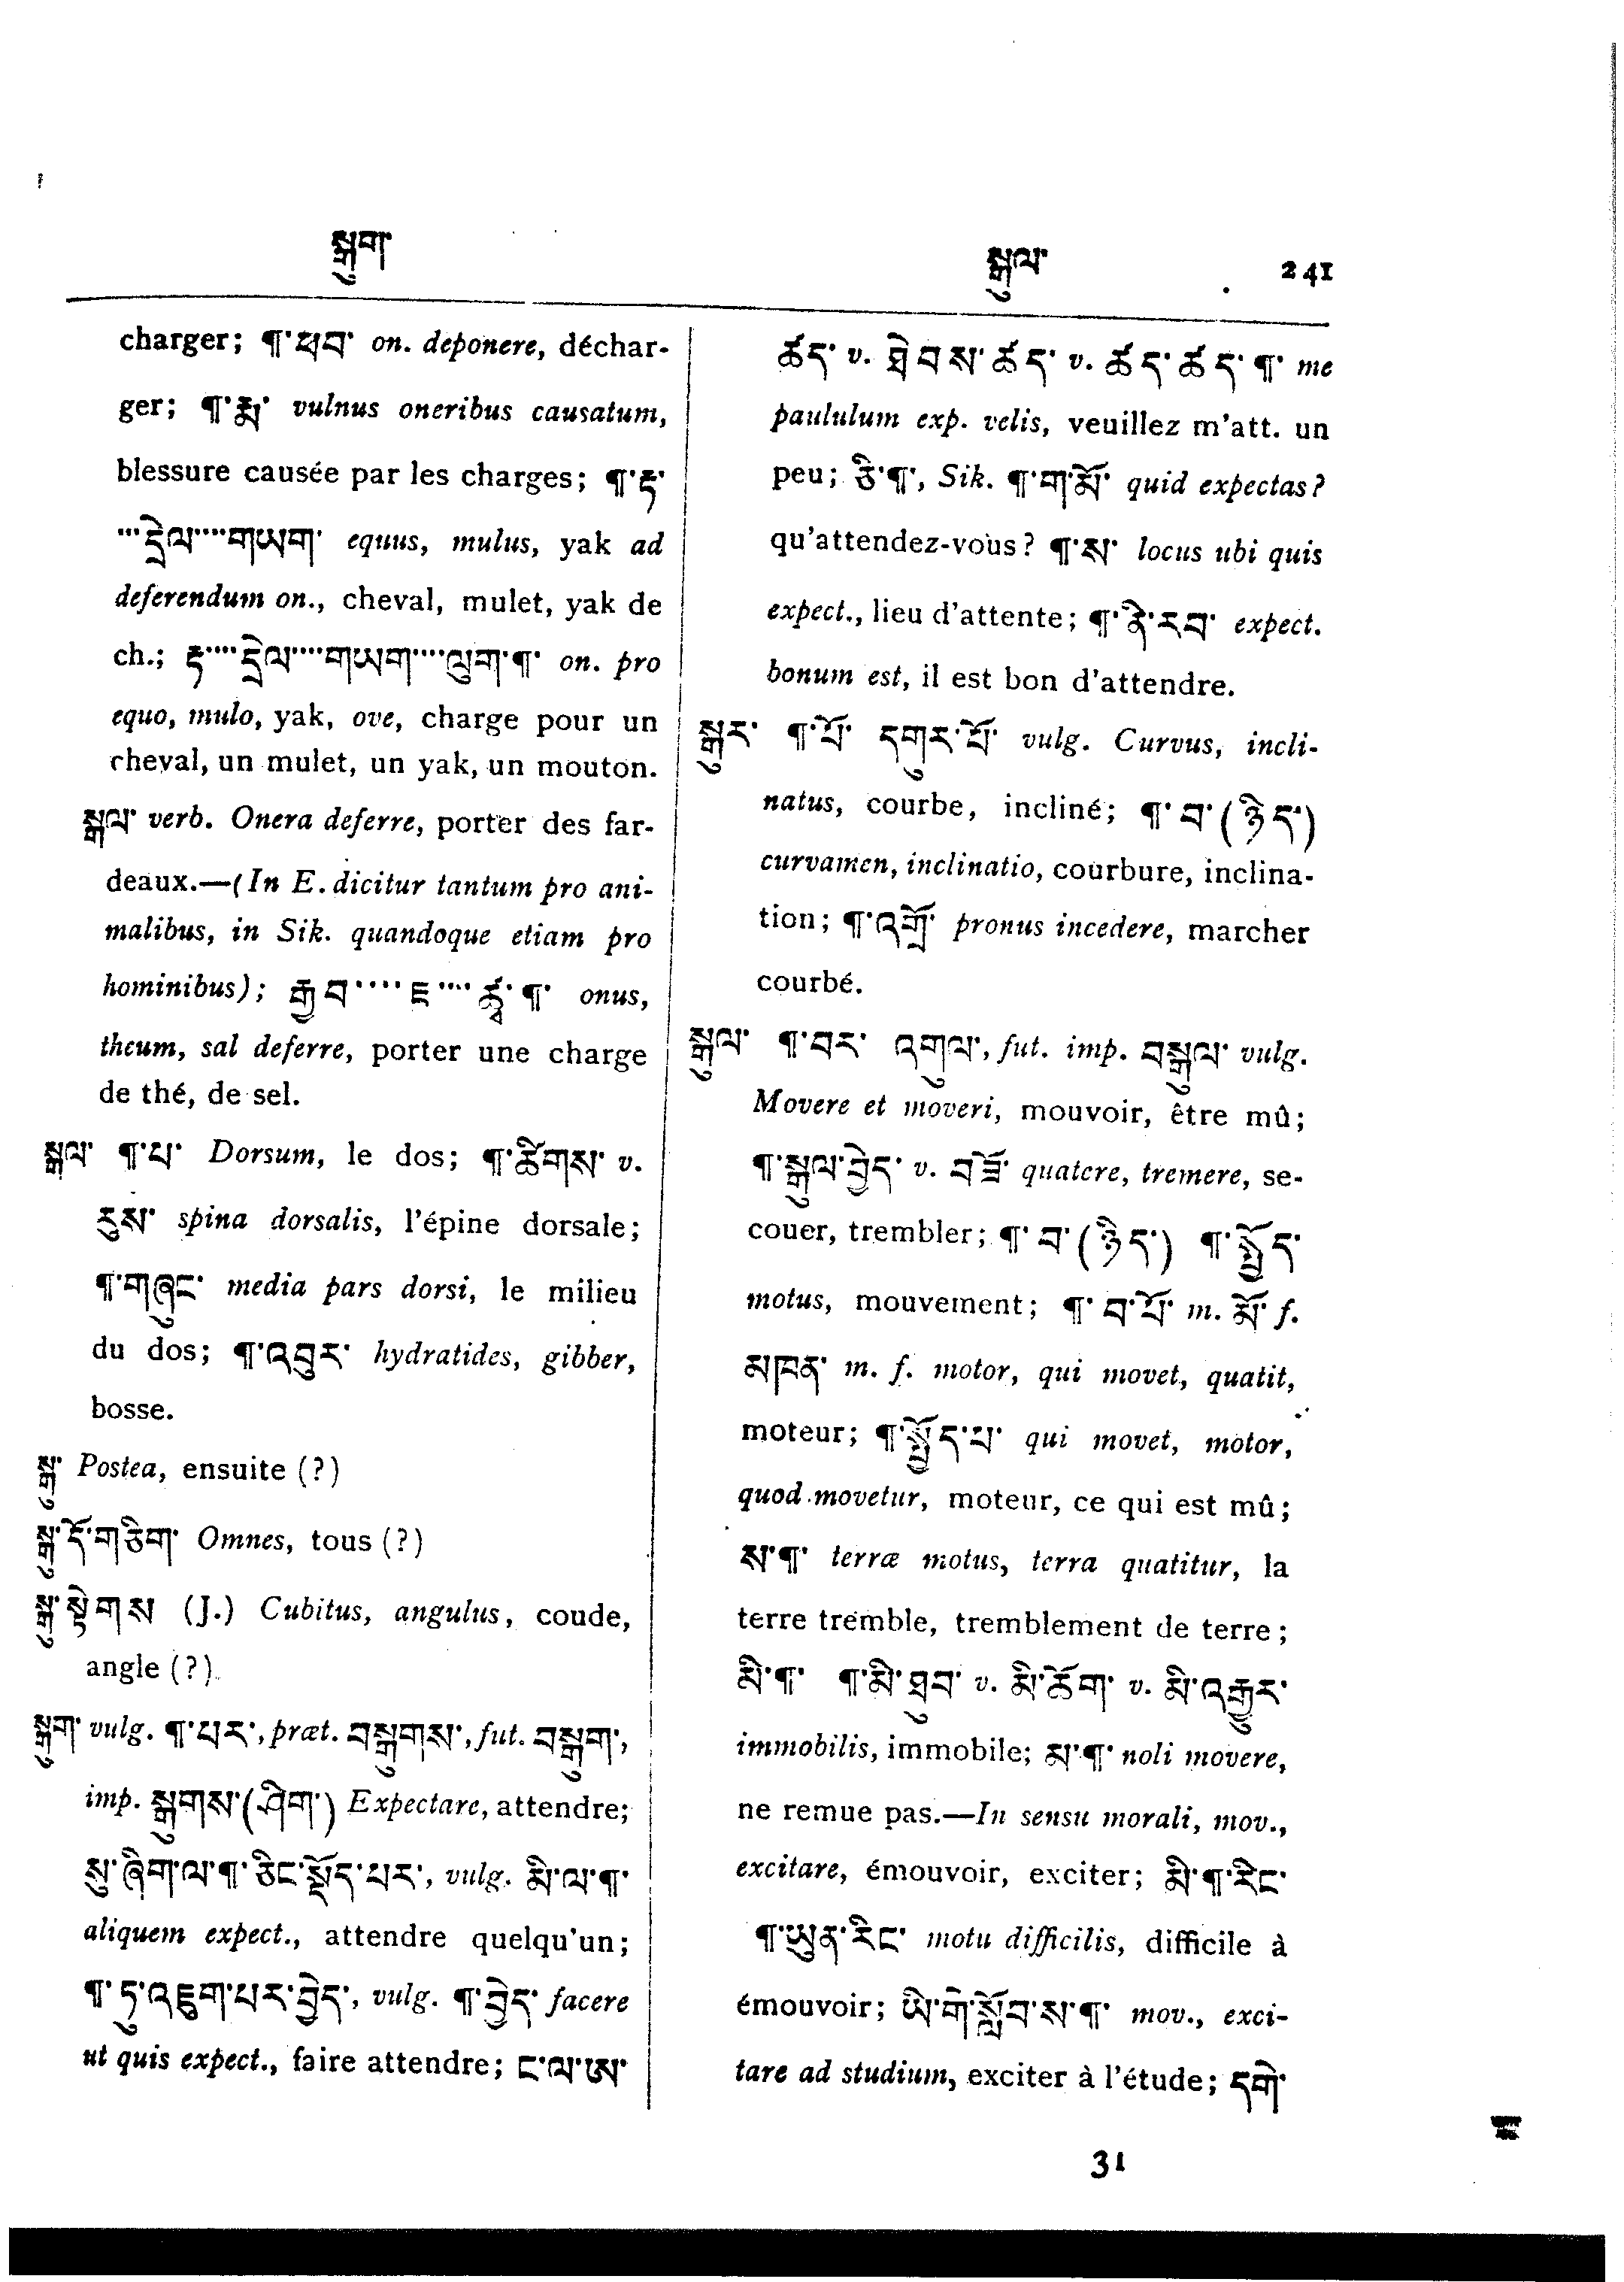 སྒུག་
སྒུལ་ 241
charger; ¶་ཕབ་ on. deponere, déchar-
ger; ¶་རྨ་ vulnus oneribus causatum,
blessure causée par les charges; ¶་རྟ་
····དྲེལ་····གཡག་ equus, mulus, yak ad
deferendum on., cheval, mulet, yak de
ch.; རྟ་····དྲེལ་····གཡག་····ལུག་¶་ on. pro
equo, mulo, yak, ove, charge pour un
cheval, un mulet, un yak, un mouton.
སྒལ་ verb. Onera deferre, porter des far-
deaux.—(In E. dicitur tantum pro ani-
malibus, in Sik. quandoque etiam pro
hominibus); རྒྱབ་····ཇ་····ཚྭ་¶་ onus,
theum, sal deferre, porter une charge
de thé, de sel.
སྒལ་ ¶་པ་ Dorsum, le dos; ¶་ཚིགས་ v.
རུས་ spina dorsalis, l'épine dorsale;
¶་གཞུང་ media pars dorsi, le milieu
du dos; ¶་འབུར་ hydratides, gibber,
bosse.
སྒུ་ Postea, ensuite (?)
སྒུ་དོ་གཅིག་ Omnes, tous (?)
སྒུ་སྟེགས (J.) Cubitus, angulus, coude,
angle (?)
སྒུག་ vulg. ¶་པར་, præt. བསྒུགས་, fut. བསྒུག་,
imp. སྒུགས་(ཤིག་) Expectare, attendre;
སུ་ཞིག་ལ་¶་ཅིང་སྡོད་པར་, vulg. མི་ལ་¶་
aliquem expect., attendre quelqu'un;
¶་ཏུ་འཇུག་པར་བྱེད་, vulg. ¶་བྱེད་ facere
ut quis expect., faire attendre; ང་ལ་ཨ་
ཚད་ v. ཐེབས་ཚད་ v. ཚད་ཚད་¶་ me
paululum exp. velis, veuillez m'att. un
peu; ཅི་¶་, Sik. ¶་ག་མོ་ quid expectas?
qu'attendez-vous? ¶་ས་ locus ubi quis
expect., lieu d'attente; ¶་ནི་རབ་ expect.
bonum est, il est bon d'attendre.
སྒུར་ ¶་པོ་ དགུར་པོ་ vulg. Curvus, incli-
natus, courbe, incliné; ¶་བ་(ཉིད་)
curvamen, inclinatio, courbure, inclina-
tion; ¶་འགྲོ་ pronus incedere, marcher
courbé.
སྒུལ་ ¶་བར་ འགུལ་, fut. imp. བསྒུལ་ vulg.
Movere et moveri, mouvoir, être mû;
¶་སྒུལ་བྱེད་ v. བཟོ་ quatere, tremere, se-
couer, trembler; ¶་བ་(ཉིད་) ¶་སྤྱོད་
motus, mouvement; ¶་བ་པོ་ m. མོ་ f.
མཁན་ m. f. motor, qui movet, quatit,
moteur; ¶་སྤྱོད་པ་ qui movet, motor,
quod movetur, moteur, ce qui est mû;
ས་¶་ terræ motus, terra quatitur, la
terre tremble, tremblement de terre;
མི་¶་ ¶་མི་ཐུབ་ v. མི་ཆོག་ v. མི་འགྱུར་
immobilis, immobile; མ་¶་ noli movere,
ne remue pas.—In sensu morali, mov.,
excitare, émouvoir, exciter; མི་¶་རིང་
¶་ཡུན་རིང་ motu difficilis, difficile à
émouvoir; ཡི་གེ་སློབ་ས་¶་ mov., exci-
tare ad studium, exciter à l'étude; དགེ་
31